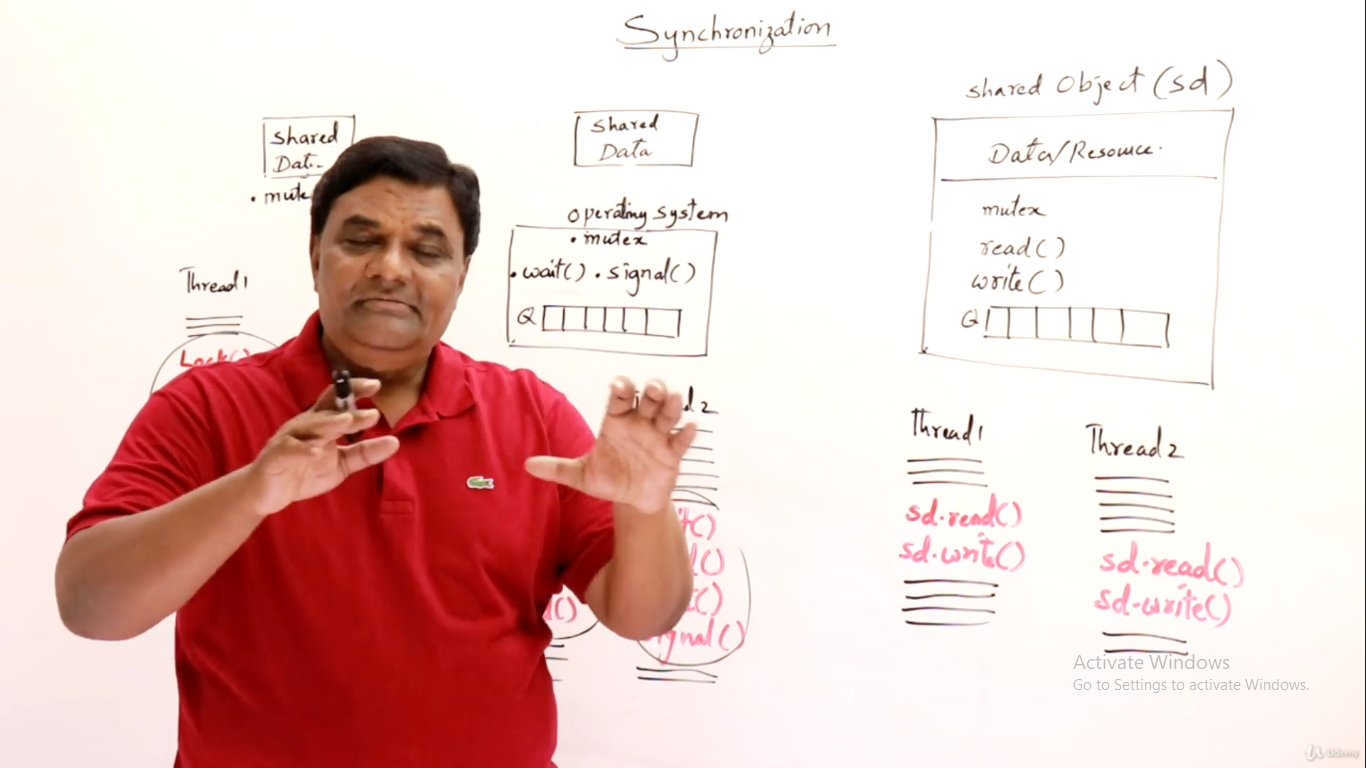 Synchronization
shared
Data
• mute
Thread1
Lock()
shared
Data
operating system
• mutex
• wait() • signal()
Q
2
signal()
shared Object (sd)
Data/Resource.
mutex
read()
write()
Q
Thread1
sd.read()
sd.write()
Thread2
sd.read()
sd.write()
Activate Windows
Go to Settings to activate Windows.
Udemy